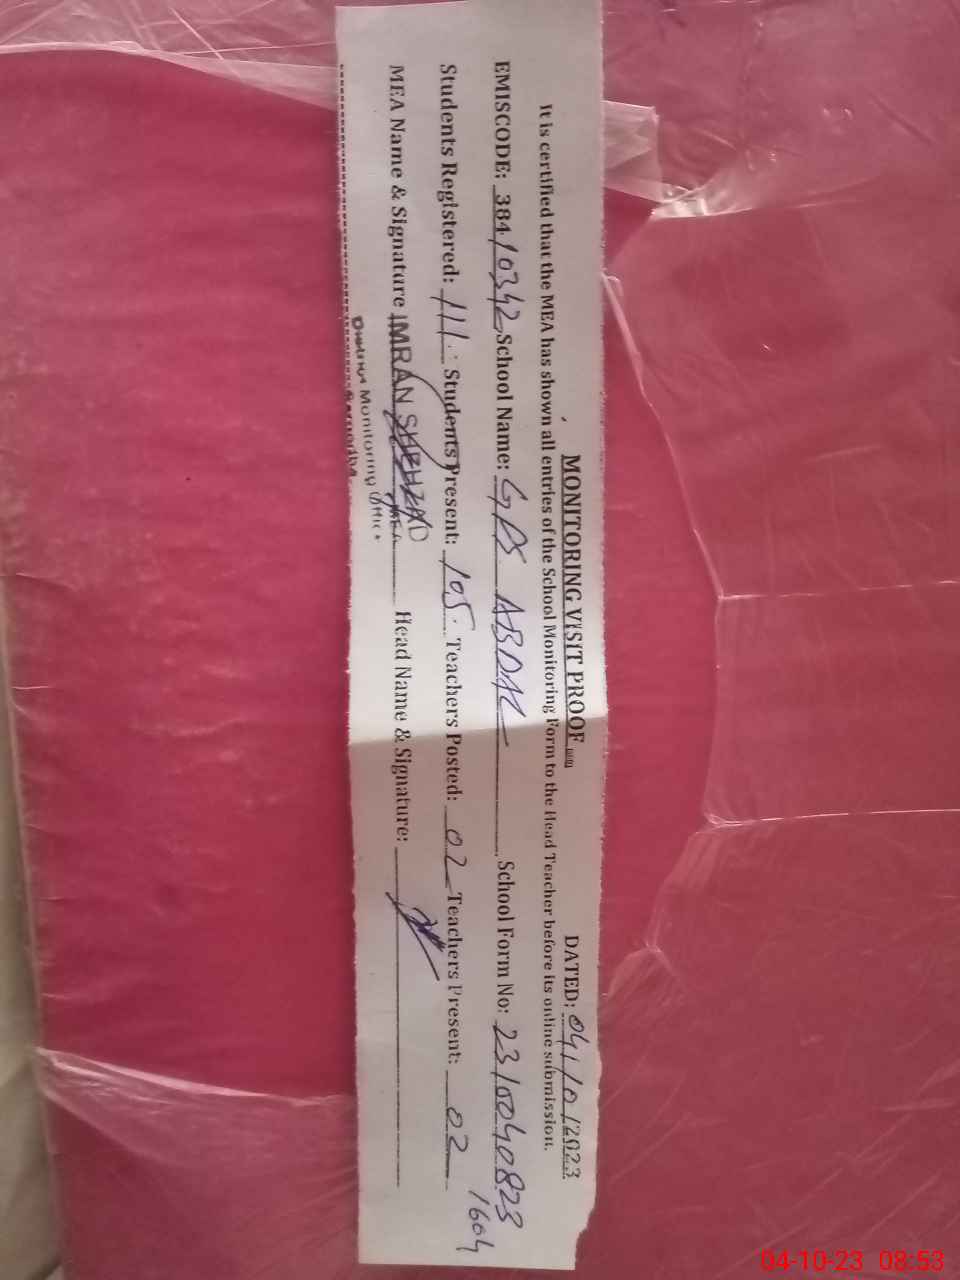 MONITORING VISIT PROOF DATED: 04/10/2023
It is certified that the MEA has shown all entries of the School Monitoring Form to the Head Teacher before its online submission.
EMISCODE: 38410342 School Name: GPS ABDAL School Form No: 2310040823
1604
Students Registered: 111 Students Present: 105 Teachers Posted: 02 Teachers Present: 02
MEA Name & Signature IMRAN SHEHZAD MEA Head Name & Signature:
District Monitoring Office
Sargodha
04-10-23 08:53